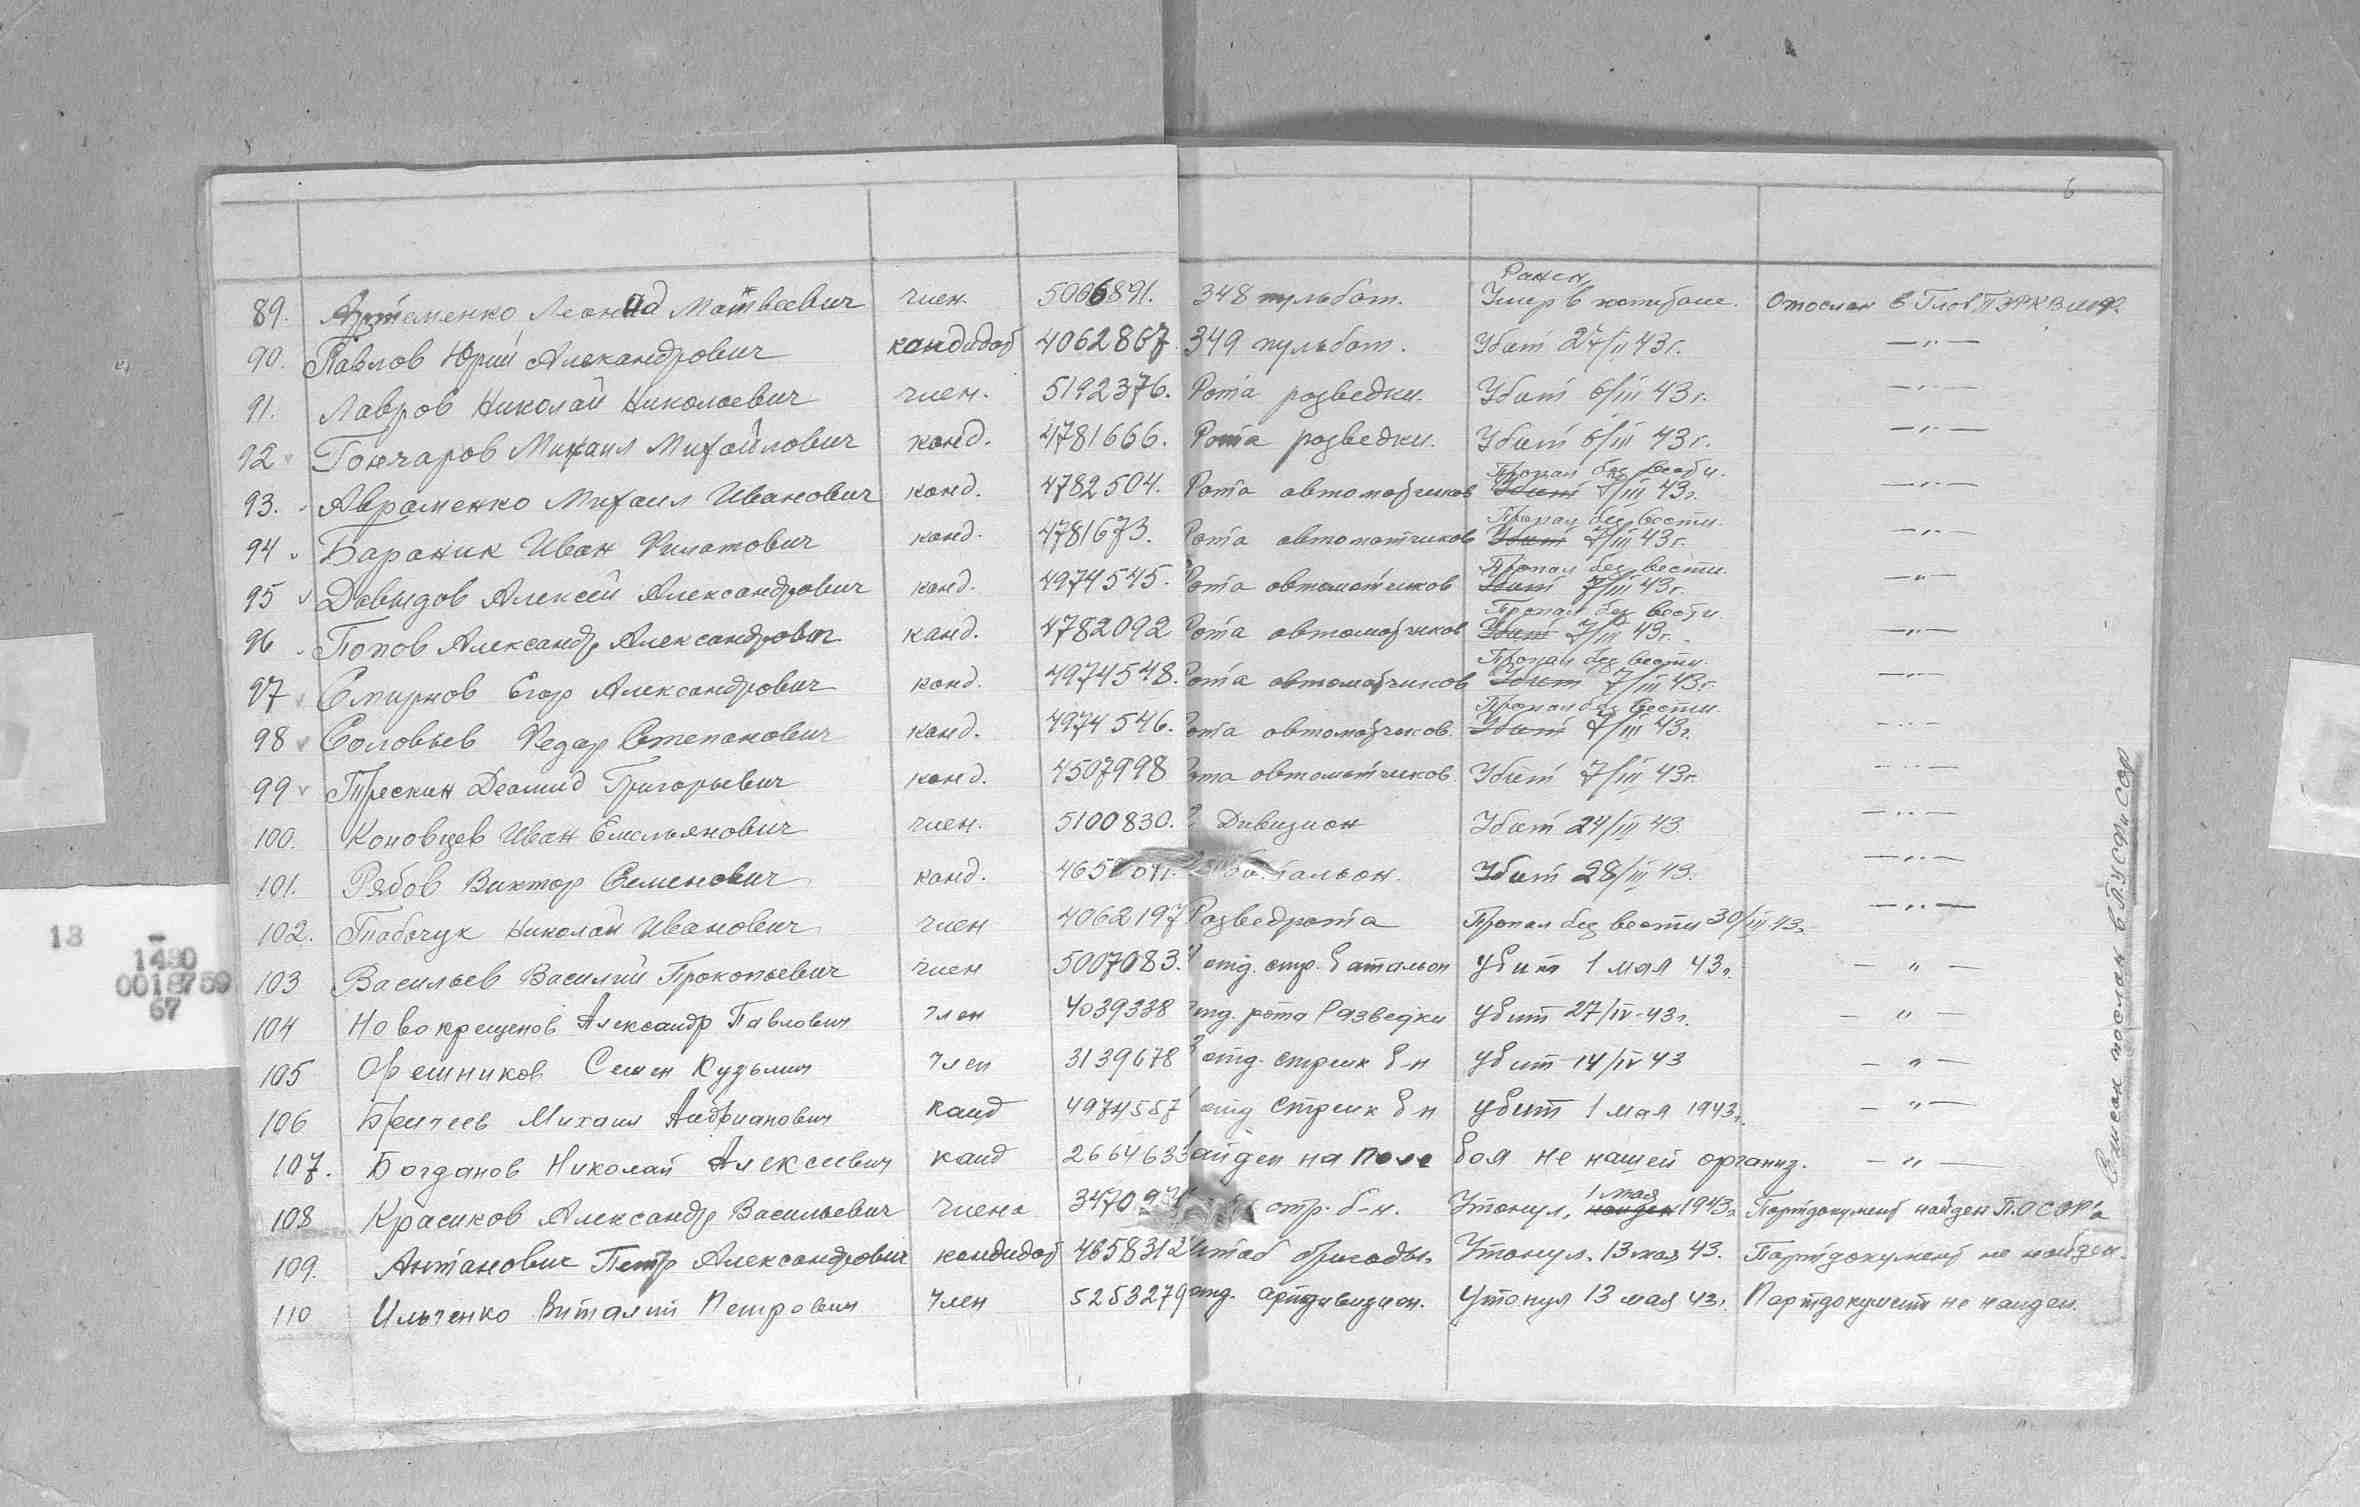 6
89. Артеменко Леонид Матвеевич член 5006891. 348 пульбат. Ранен, Умер в Отослан в Глав
90. Павлов Юрий Александрович кандидат 4062867 349 пульбат. Убит 27/II 43г. —"—
91. Лавров Николай Николаевич член. 5192376. Рота розведки. Убит 6/III 43г. —"—
92 Гончаров Михаил Михайлович канд. 4781666. Рота розведки. Убит 6/III 43г. —"—
93. Авраменко Михаил Иванович канд. 4782504. Рота автоматчиков Пропал без вести Убит 7/III 43г. —"—
94 Бараник Иван Филатович канд. 4781673. Рота автоматчиков Пропал без вести Убит 7/III 43г. —"—
95 Давыдов Алексей Александрович канд. 4974545. Рота автоматчиков Пропал без вести Убит 7/III 43г. —"—
96 Попов Александр Александрович канд. 4782092 Рота автоматчиков Пропал без вести Убит 7/III 43г. —"—
97 Смирнов Егор Александрович канд. 4974548. Рота автоматчиков Пропал без вести Убит 7/III 43г. —"—
98 Соловьев Федар Степанович канд. 4974546. Рота автоматчиков. Пропал без вести Убит 7/III 43г. —"—
99 Трескин Деомид Григорьевич канд. 4507998 Рота автоматчиков. Убит 7/III 43г. —"—
100. Коновцев Иван Емельянович член. 5100830. Дивизион Убит 24/III 43. —"—
101. Рябов Виктор Семенович канд. Убит 28/III 43. —"—
102. Николай Иванович член 4062197 Розведрота Пропал без вести 30/III 43г. —"—
103 Васильев Василий Прокопьевич член 5007083. отд. стр. батальон Убит 1 мая 43г. —"—
104 Новокрещенов Александр Павлович член 4039338 отд. рота Разведки Убит 27/IV-43г. —"—
105 Семен Кузьмич член 3139678 отд. стрелк б-н Убит 14/IV 43 —"—
106 Михаил Андрианович канд 4974557 отд стрелк б-н Убит 1 мая 1943г. —"—
107. Богданов Николай Алексеевич канд 2664633 найден на поле боя не нашей организ. —"—
108 Красиков Александр Васильевич члена стр. б-н. Утонул, 1 мая найден 1943г Партдокумент найден
109. Антанович Петр Александрович кандидат 4658312 Штаб бригады. Утонул. 13 мая 43. Партдокумент не найден.
110 Ильченко Виталий Петрович член 5253279 отд. артдивизион. Утонул 13 мая 43г. Партдокумент не найден.
Список послан в
13
1480
0018759
67